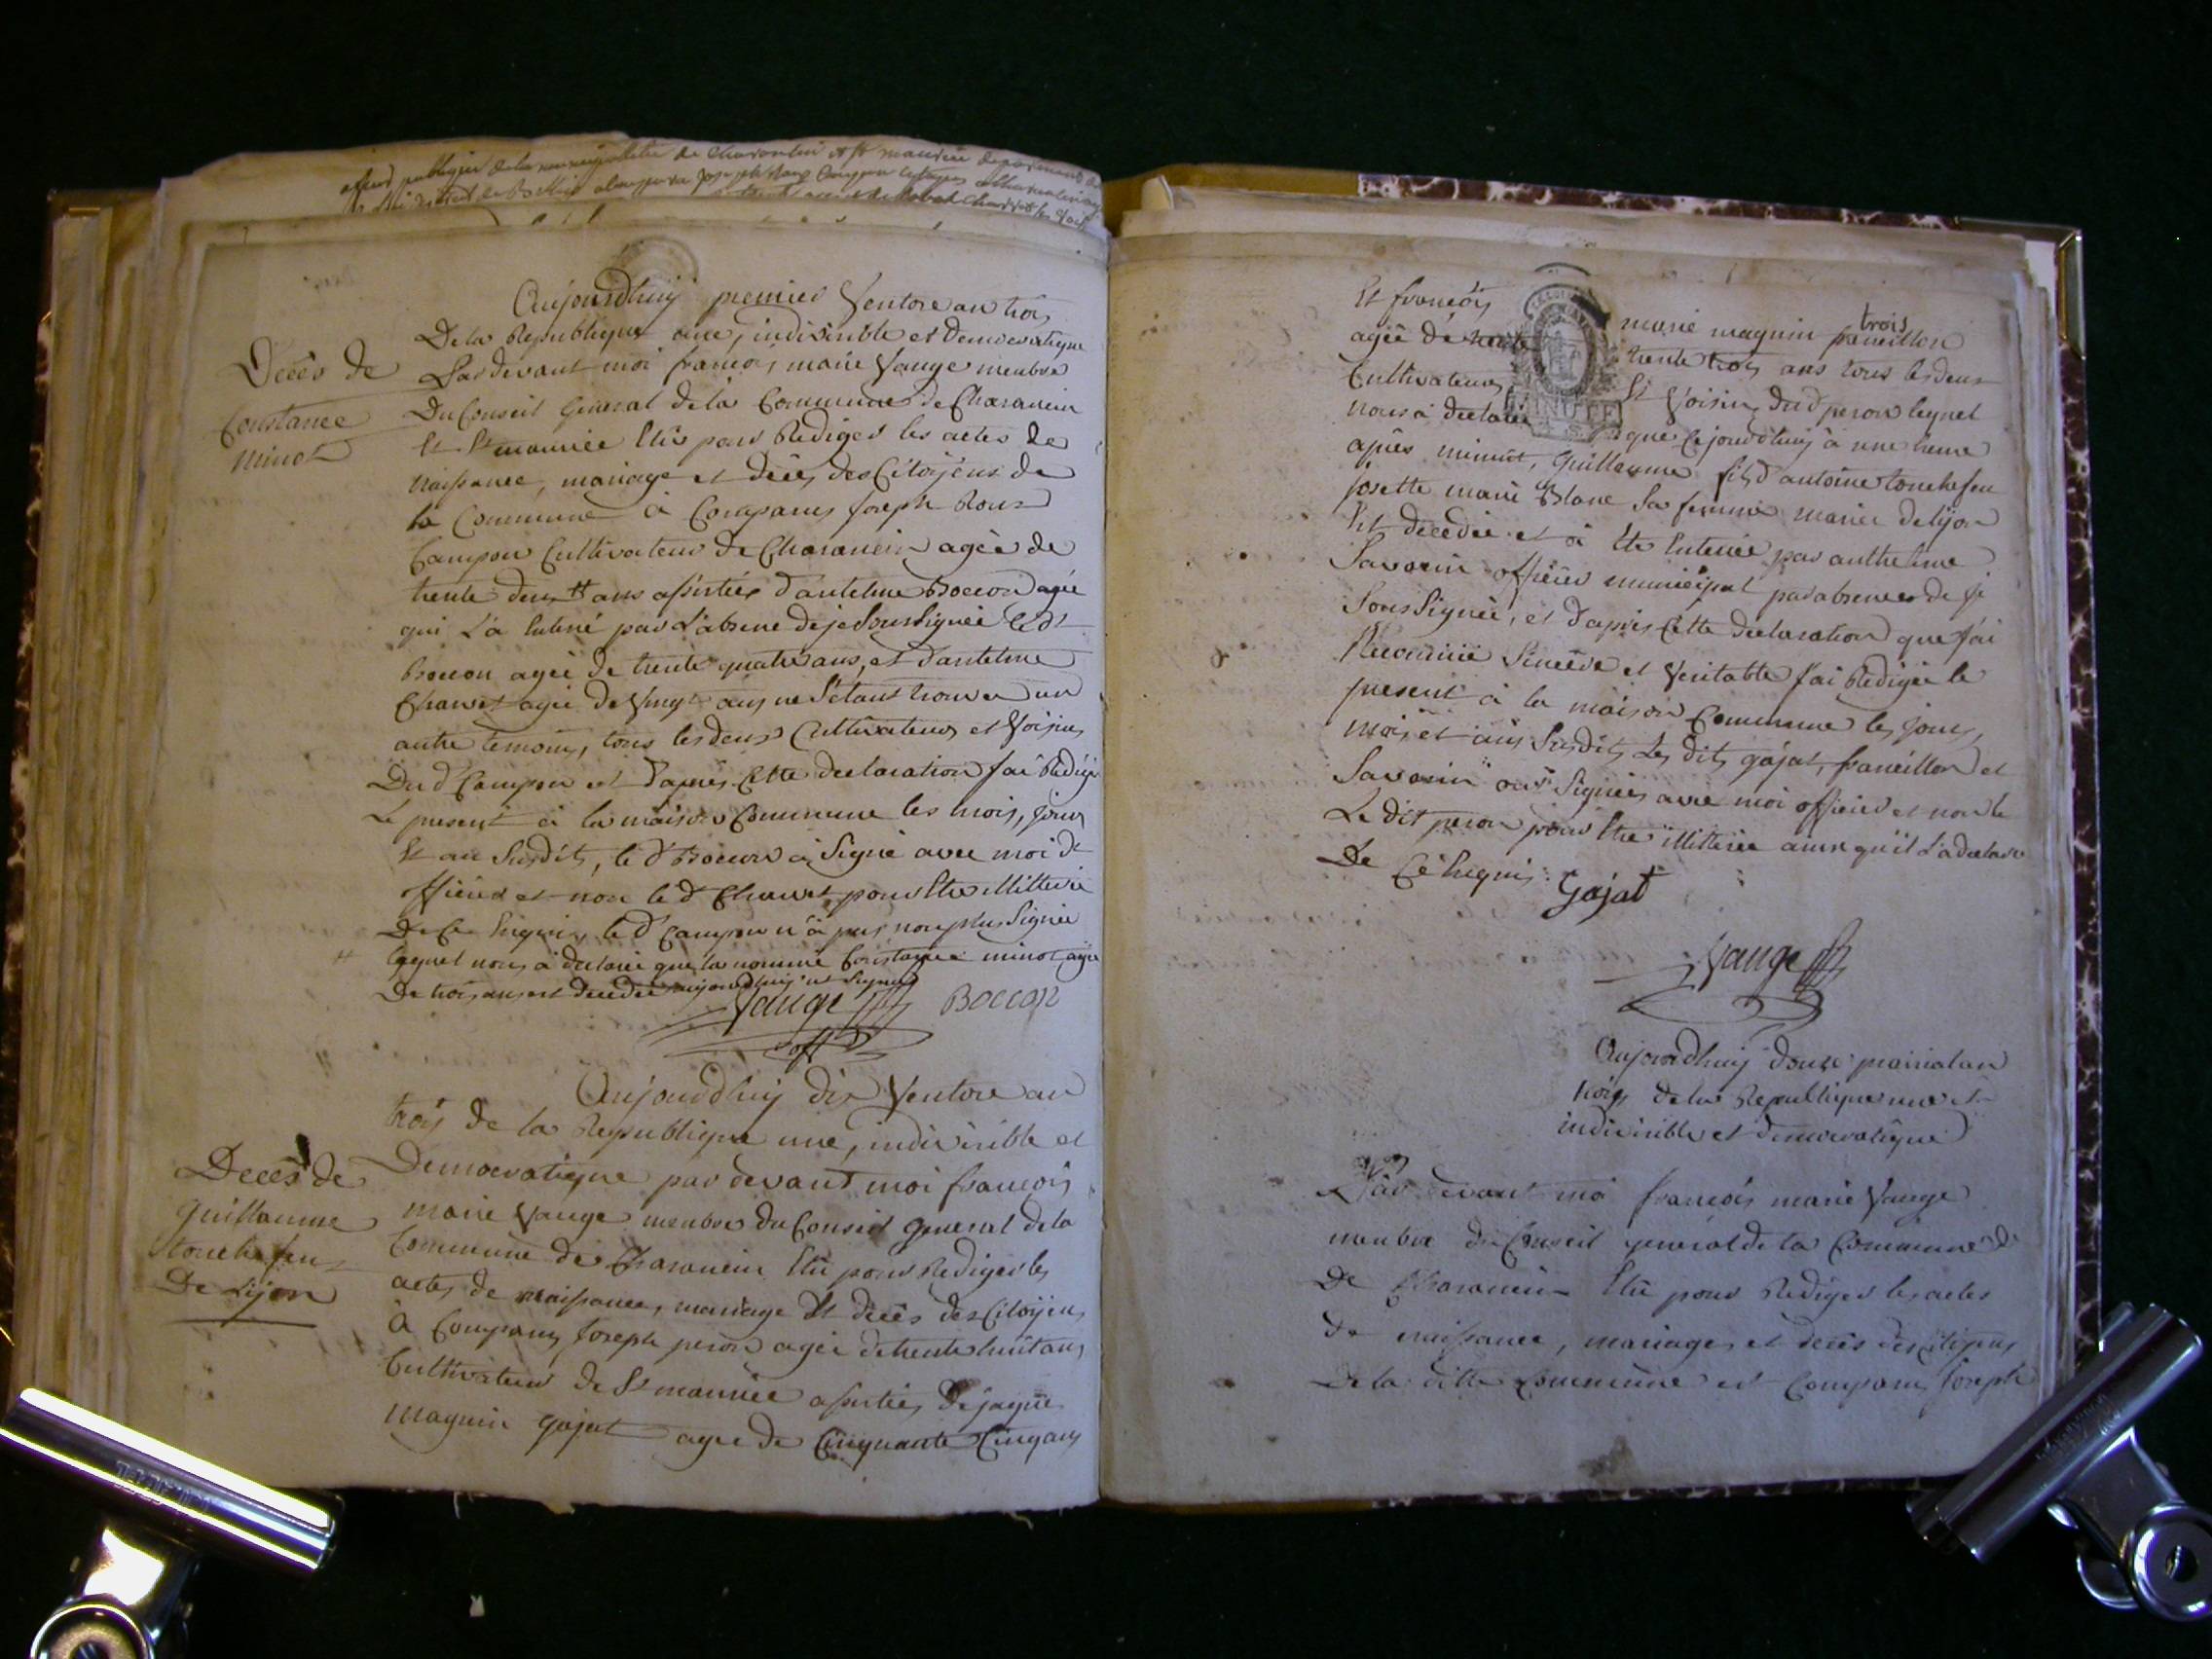 Aujourdhuy premier Ventose an trois
De la Republique une, indivisible et Democratique
Pardevant moi françois marie Vauge membre
Du Conseil General de la Commune de Charancin
Et St maurice Elû pour Rediger les actes de
Décès de
Constance
minot
naissance, mariage et décès des Citoÿens de
la Commune à Comparus Joseph Roux
Campon Cultivateur de Charancin agée de
trente deux # ans assistés d'antelme Boccon agée
qui l'a Enterré par l'absence de je Soussignée led
Boccon agée de trente quatre ans, et d'antelme
Charvet agée de Vingt ans ne S'étant trouvé un
autre temoins, tous les deux Cultivateurs et Voisins
Du d Campon et d'après cette declaration J'ai Redigé
Le present à la maison Commune les mois, jour
Et an Susdits, le d Boccon à Signé avec moi d
officier et non le d Charvet pour Etre illitterée
De ce Enquis, le d Campon n'à pas non plus Signée
# lequel nous à declarée que la nommé Constance minot agée
De trois ans est decedée aujourdhuy et Signés
Vauge Boccon
off
Aujourdhuy dix Ventose an
trois de la Republique une, indivisible et
Decès de
Guillaume
touchefeu
De Lijon
Democratique par devant moi françois
marie Vauge membre du Conseil General de la
Commune de Charancin Elû pour Rediger les
actes de naissance, mariage Et décès des Citoÿens
à Comparus Joseph peron agée de trente huit ans
Cultivateur de St maurice assistés de jaque
magnin gajat agée de Cinquante Cinq ans
Et françois marie magnin francillon
agée de trente trois
trente trois ans tous les deux
Cultivateurs Et Voisins Du d peron lequel
MINUTE
nous à declarée que Cejourdhuy à une heure
après minuit, Guillaume fils d'antoine touchefeu
josette marie Blanc Sa femme mariés de Lijon
Est decedée et à Ete Enterrée par anthelme
Savarin officier municipal par absence de je
Sous Signée, et d'après cette declaration que J'ai
Reconnue Sincère et Veritable J'ai Redigée le
present à la maison Commune les jours,
mois et ans Susdits Les dits gajat, francillon et
Savarin ont Signées avec moi officier et non le
Le dit peron pour Etre illitterée ainsi qu'il l'a declaré
De Ce Enquis. Gajat
Vauge
Aujourdhuy douze prairial an
trois de la Republique une et
indivisible et democratique
Par devant moi françois marie Vauge
membre du Conseil general de la Commune de
De Charancin Elû pour Rediger les actes
de naissance, mariages et decès des Citoÿens
De la ditte Commune est Comparus Joseph